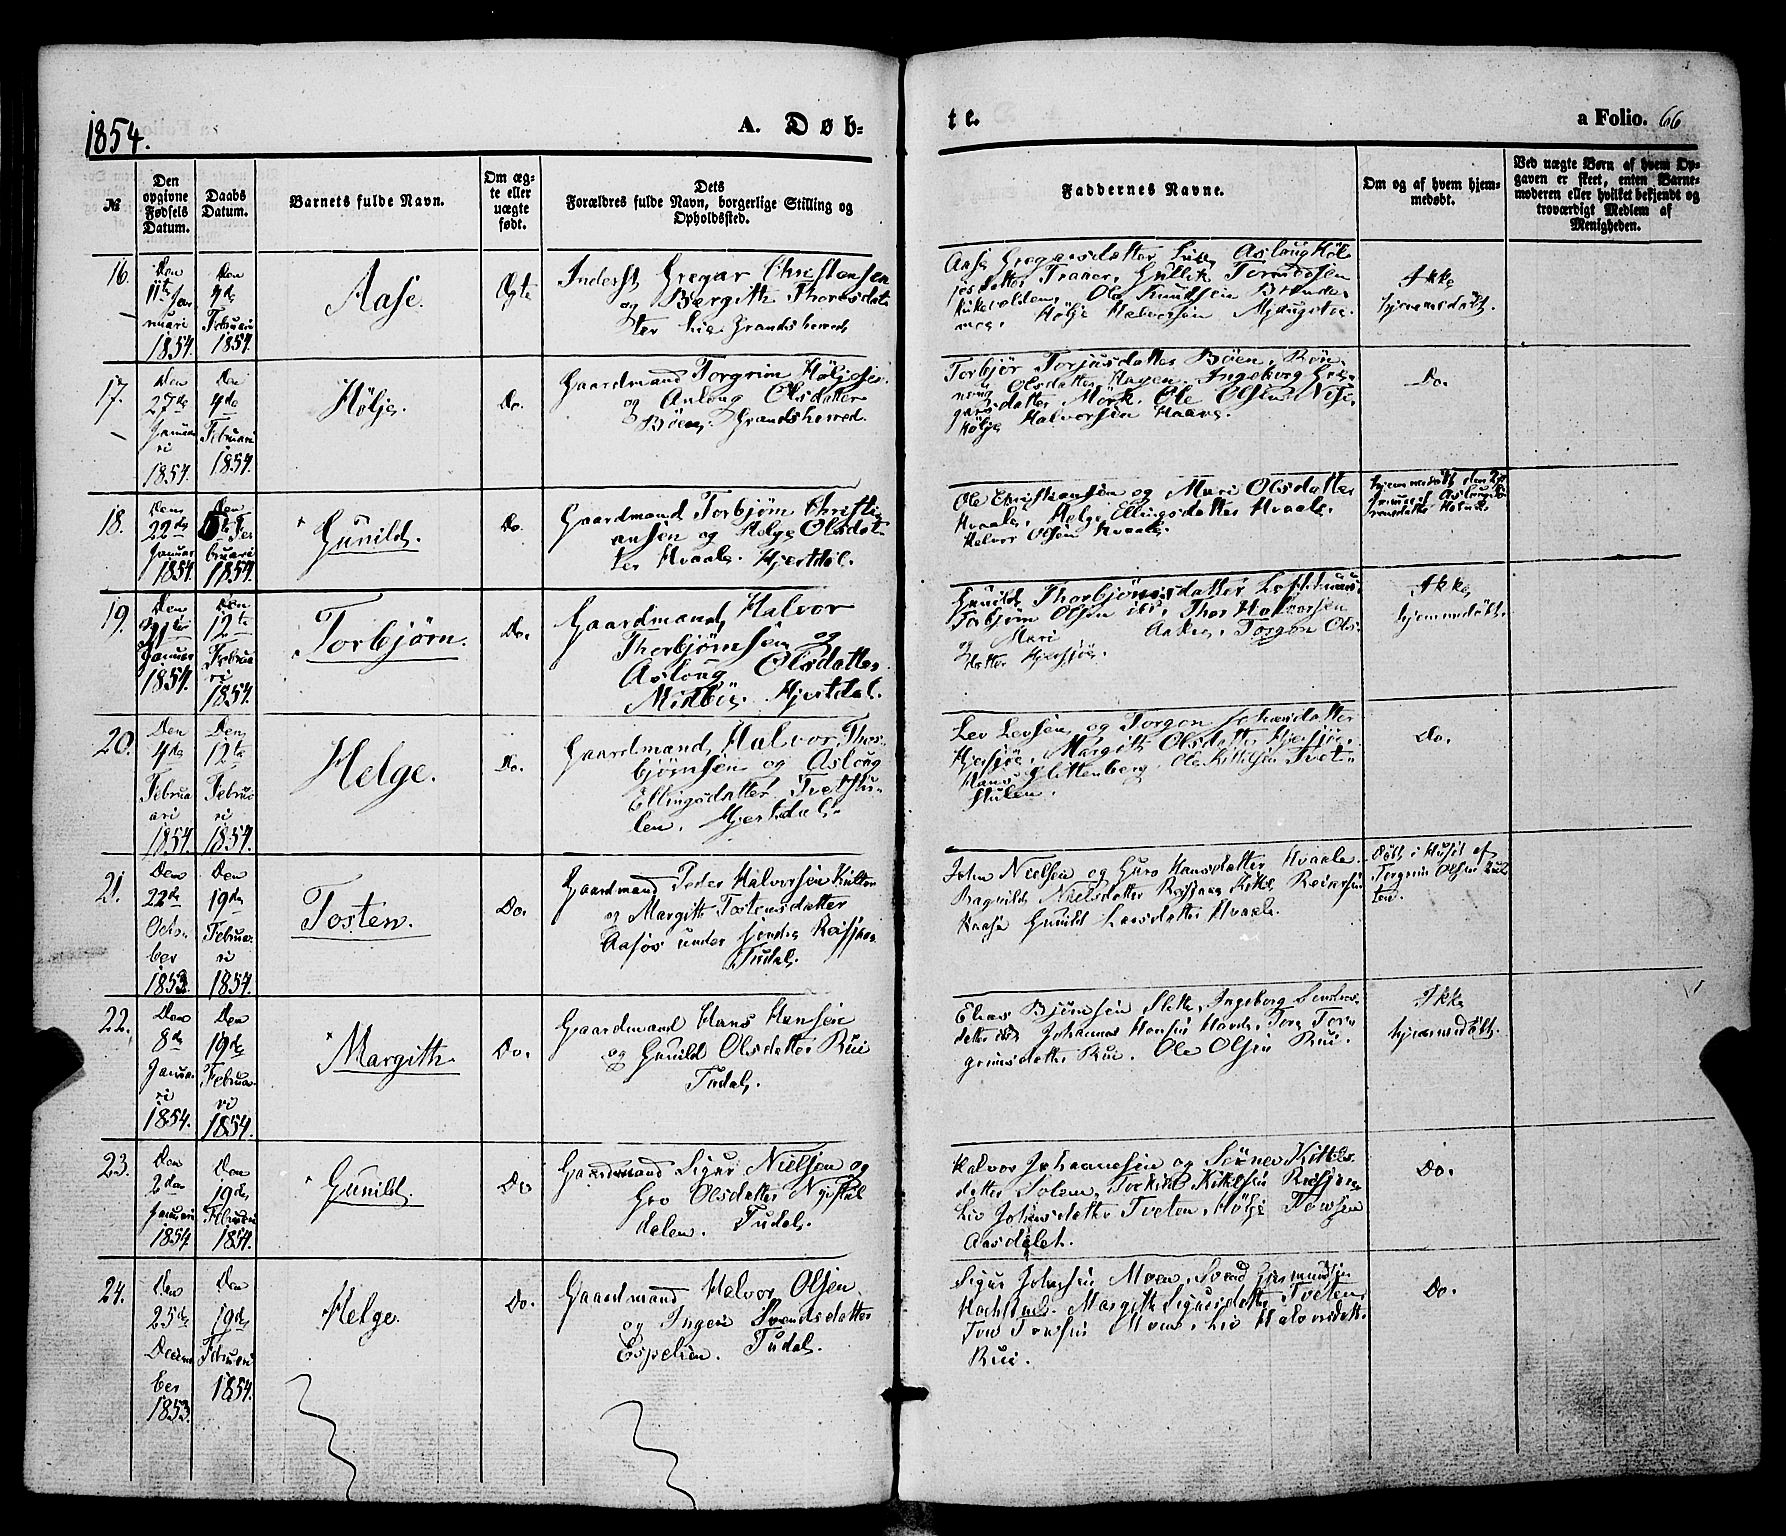 1854.
A. Døb-
te.
a Folio. 66
№
Den opgivne Fødsels Datum.
Daabs Datum.
Barnets fulde Navn.
Om ægte eller uægte født.
Dets Forældres fulde Navn, borgerlige Stilling og Opholdssted.
Faddernes Navne.
Om og af hvem hjemmedøbt.
Ved uægte Børn af hvem Opgaven er skeet, enten Barnemoderen eller hvilket bekjendt og troværdigt Medlem af Menigheden.
16.
Den 11te Januari 1854.
Den 4de Februari 1854.
Aase.
Ægte
Inderst Gregar Christensen
og Bergith Thoresdat
ter Lie Grandsherred
Aase Gregarsdatter Lie, Aslaug Høl
jesdatter Traaer, Gullik
Ole Knudsen
moe, Hølje Halvorsen
Ikke hjemmedøbt.
17.
Den 27de Januari 1854.
Den 4de Februari 1854.
Hølje.
Do.
Gaardmand Torgrim Høljesen
og Aslaug Olsdatter
Bøen. Grandsherred.
Torbjør Torjusdatter Bøen, Røn
noug Olsdatter Hagen, Ingeborg Gre
garsdatter Mørk, Ole Olsen
Hølje Halvorsen Haave.
Do.
18.
Den 22de Januar 1854.
Den 5te Februari 1854.
Gunild.
Do.
Gaardmand Torbjørn Christi
ansen og Helge Olsdat
ter Hvaale. Hjertdal.
Ole Christiansen og Mari Olsdatter
Hvaale, Helge Ellingsdatter Hvaale.
Halvor Olsen Hvaale
Hjemmedøbt den
19.
Den Januar 1854.
Den 12te Februari 1854.
Torbjørn.
Do.
Gaardmand Halvor
Thorbjørnsen og
Asloug Olsdatter
Midbøe. Hjertdal.
Gunild Thorbjørnsdatter
Torbjørn Olsen ibid, Thor Halvorsen
og Mari Torgon Ols
datter Hjersjøe.
Ikke hjemmedøbt.
20.
Den 4de Februari 1854.
Den 12te Februari 1854.
Helge.
Do.
Gaardmand Halvor Thor
bjørnsen og Aslaug
Ellingsdatter Tvetstu
len. Hjertdal.
Lev Levsen og Torgon Johansdatter
Hjersjøe, Margith Olsdatter Hjersjøe.
Hans Glittenberg. Ole Kittilsen Tvet
stulen.
Do.
21.
Den 22de October 1853.
Den 19de Februari 1854.
Tosten.
Do.
Gaardmand Peder Halvorsen Kulten
og Margith Tostensdatter
Aasos under søndre Reisjaa
Tudal.
John Nielsen og Guro Hansdatter Hvaale.
Ragnild Nielsdatter Reisjaa,
Gunild Larsdatter Hvaale.
Døbt i Huset af
Torgrim Olsen Kul
ten.
22.
Den 8de Januari 1854.
Den 19de Februari 1854.
Margith
Do.
Gaardmand Hans Hansen
og Gunild Olsdatter Rui
Tudal.
Elias Bjørnsen Slette, Ingeborg
datter ibid, Johannes Hansen Tone Tor
grimsdatter Rui. Ole Olsen Rui.
Ikke hjemmedøbt.
23.
Den 2den Januari 1854
Den 19de Februari 1854.
Gunild.
Do
Gaardmand Sigur Nielsen og
Gro Olsdatter Nystøl
dalen. Tudal.
Halvor Johannesen og Kittils
datter Solem,
Liv Johnsdatter Tveten, Hølje
Aasdalet.
Do.
24.
Den 25de December 1853.
Den 19de Februari 1854.
Helge
Do.
Gaardmand Halvor Olsen
og Ingeri Svendsdatter
Espelien. Tudal.
Sigur Johnsen Moen, Svend
Margith Sigursdatter Tveten,
Moen, Liv Halvorsdatter
Rui.
Do.